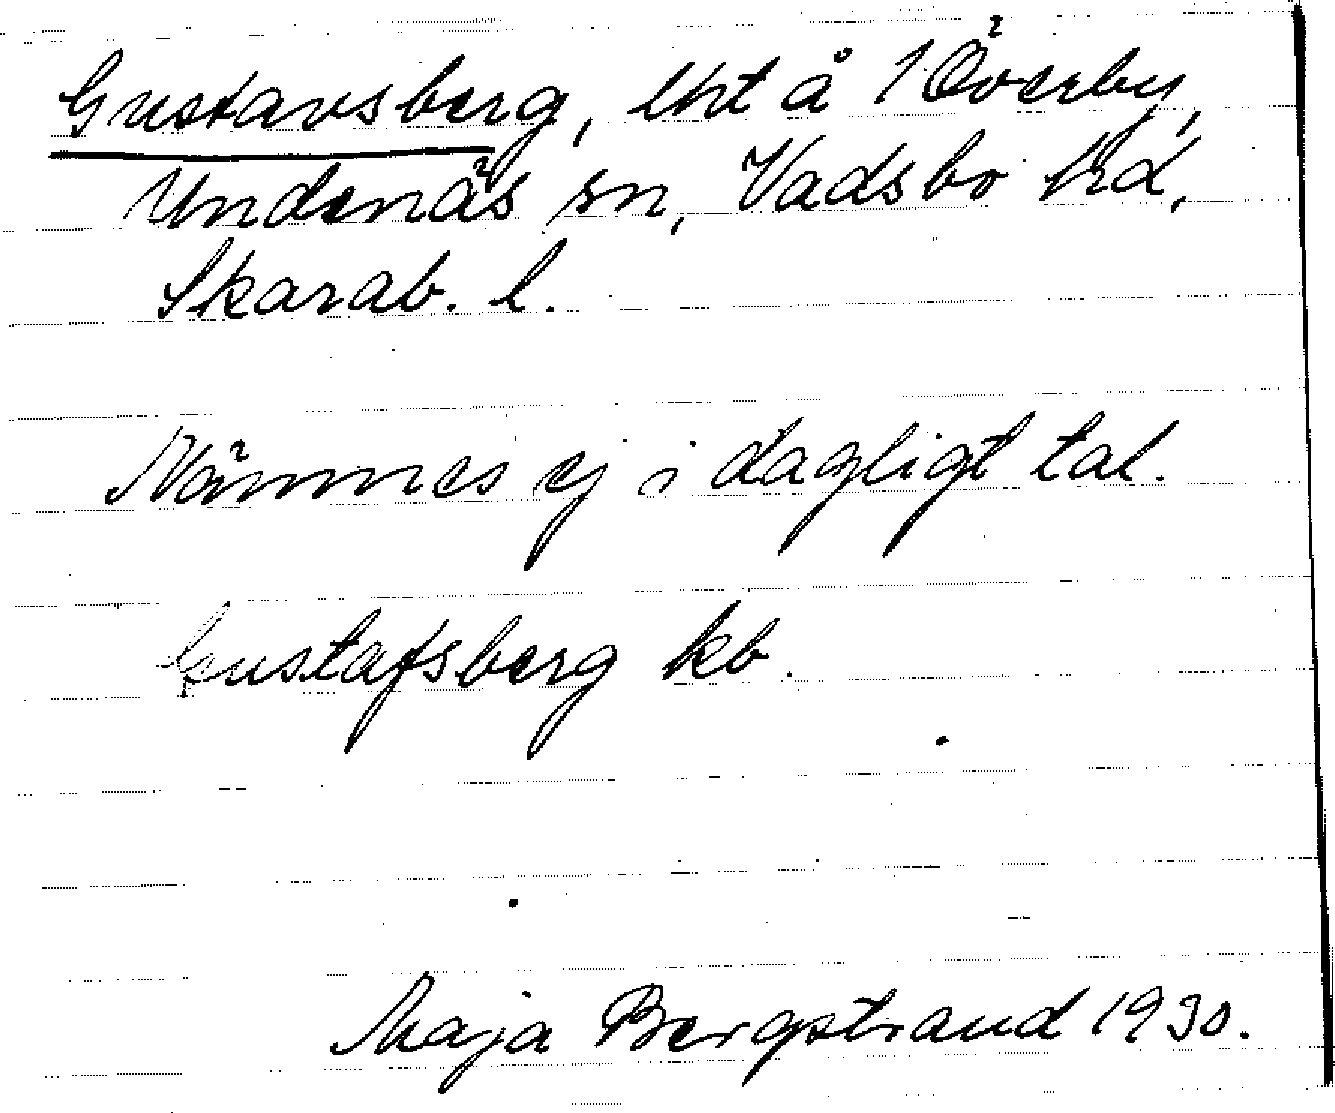 Gustavsberg, lht å 1 Överby,
Undenäs sn, Vadsbo hd,
Skarab. l.
Nämnes ej i dagligt tal.
Gustafsberg kb.
Maja Bergstrand 1930.